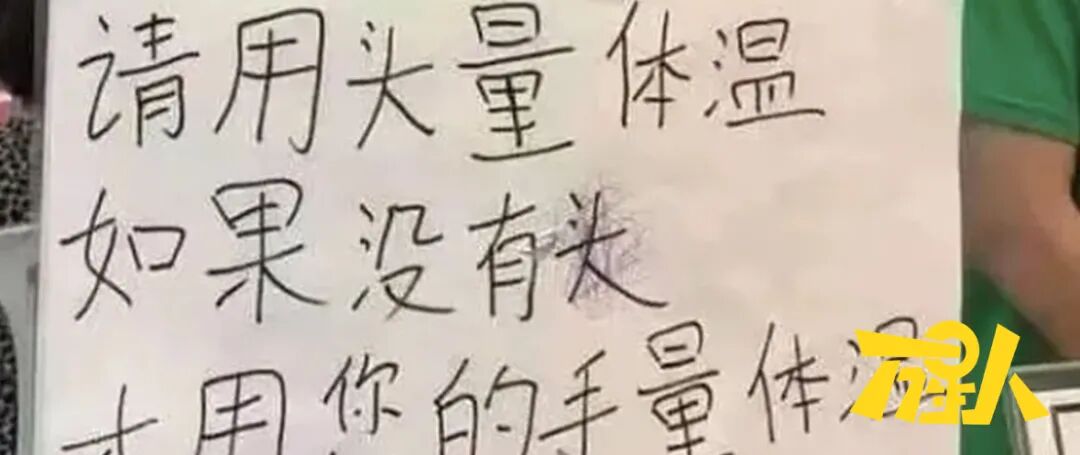 请用头量体温
如果没有头
才用你的手量体温